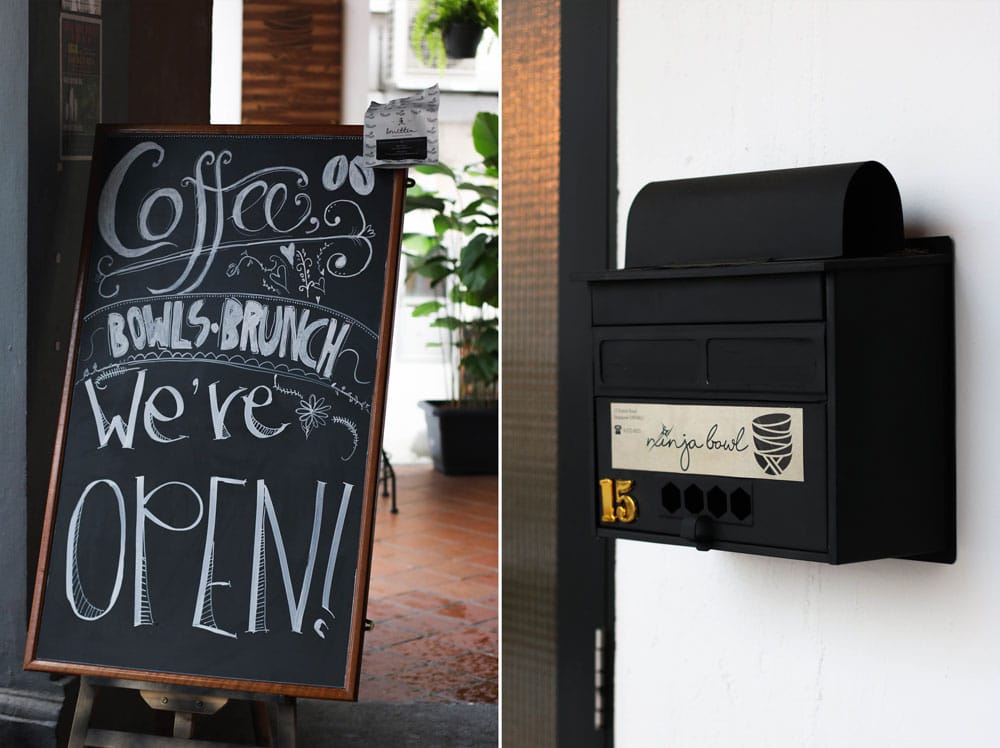 Coffee
BOWLS·BRUNCH
We're
OPEN!
ninja bowl
15